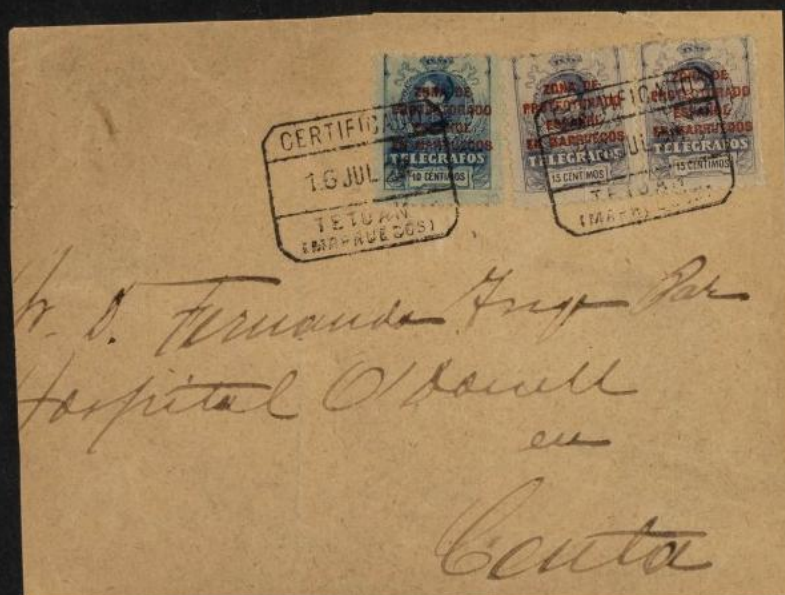 ZONA DE PROTECTORADO ESPAÑOL EN MARRUECOS
TELEGRAFOS
10 CENTIMOS
ZONA DE PROTECTORADO ESPAÑOL EN MARRUECOS
TELEGRAFOS
15 CENTIMOS
ZONA DE PROTECTORADO ESPAÑOL EN MARRUECOS
TELEGRAFOS
15 CENTIMOS
CERTIFICADO
16 JUL
TETUAN
(MARRUECOS)
TETUAN
D. Fernando
Hospital O'Donell
en
Ceuta